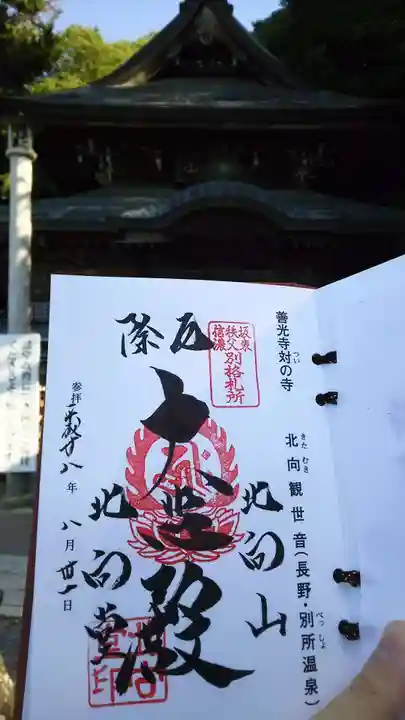 善光寺対の寺
つい
北向観世音(長野・別所温泉)
きた むき
べっしょ
坂東
秩父
信濃
別格札所
厄除
北向山
大悲殿
北向堂
参拝 平成廿八年 八月 廿一日